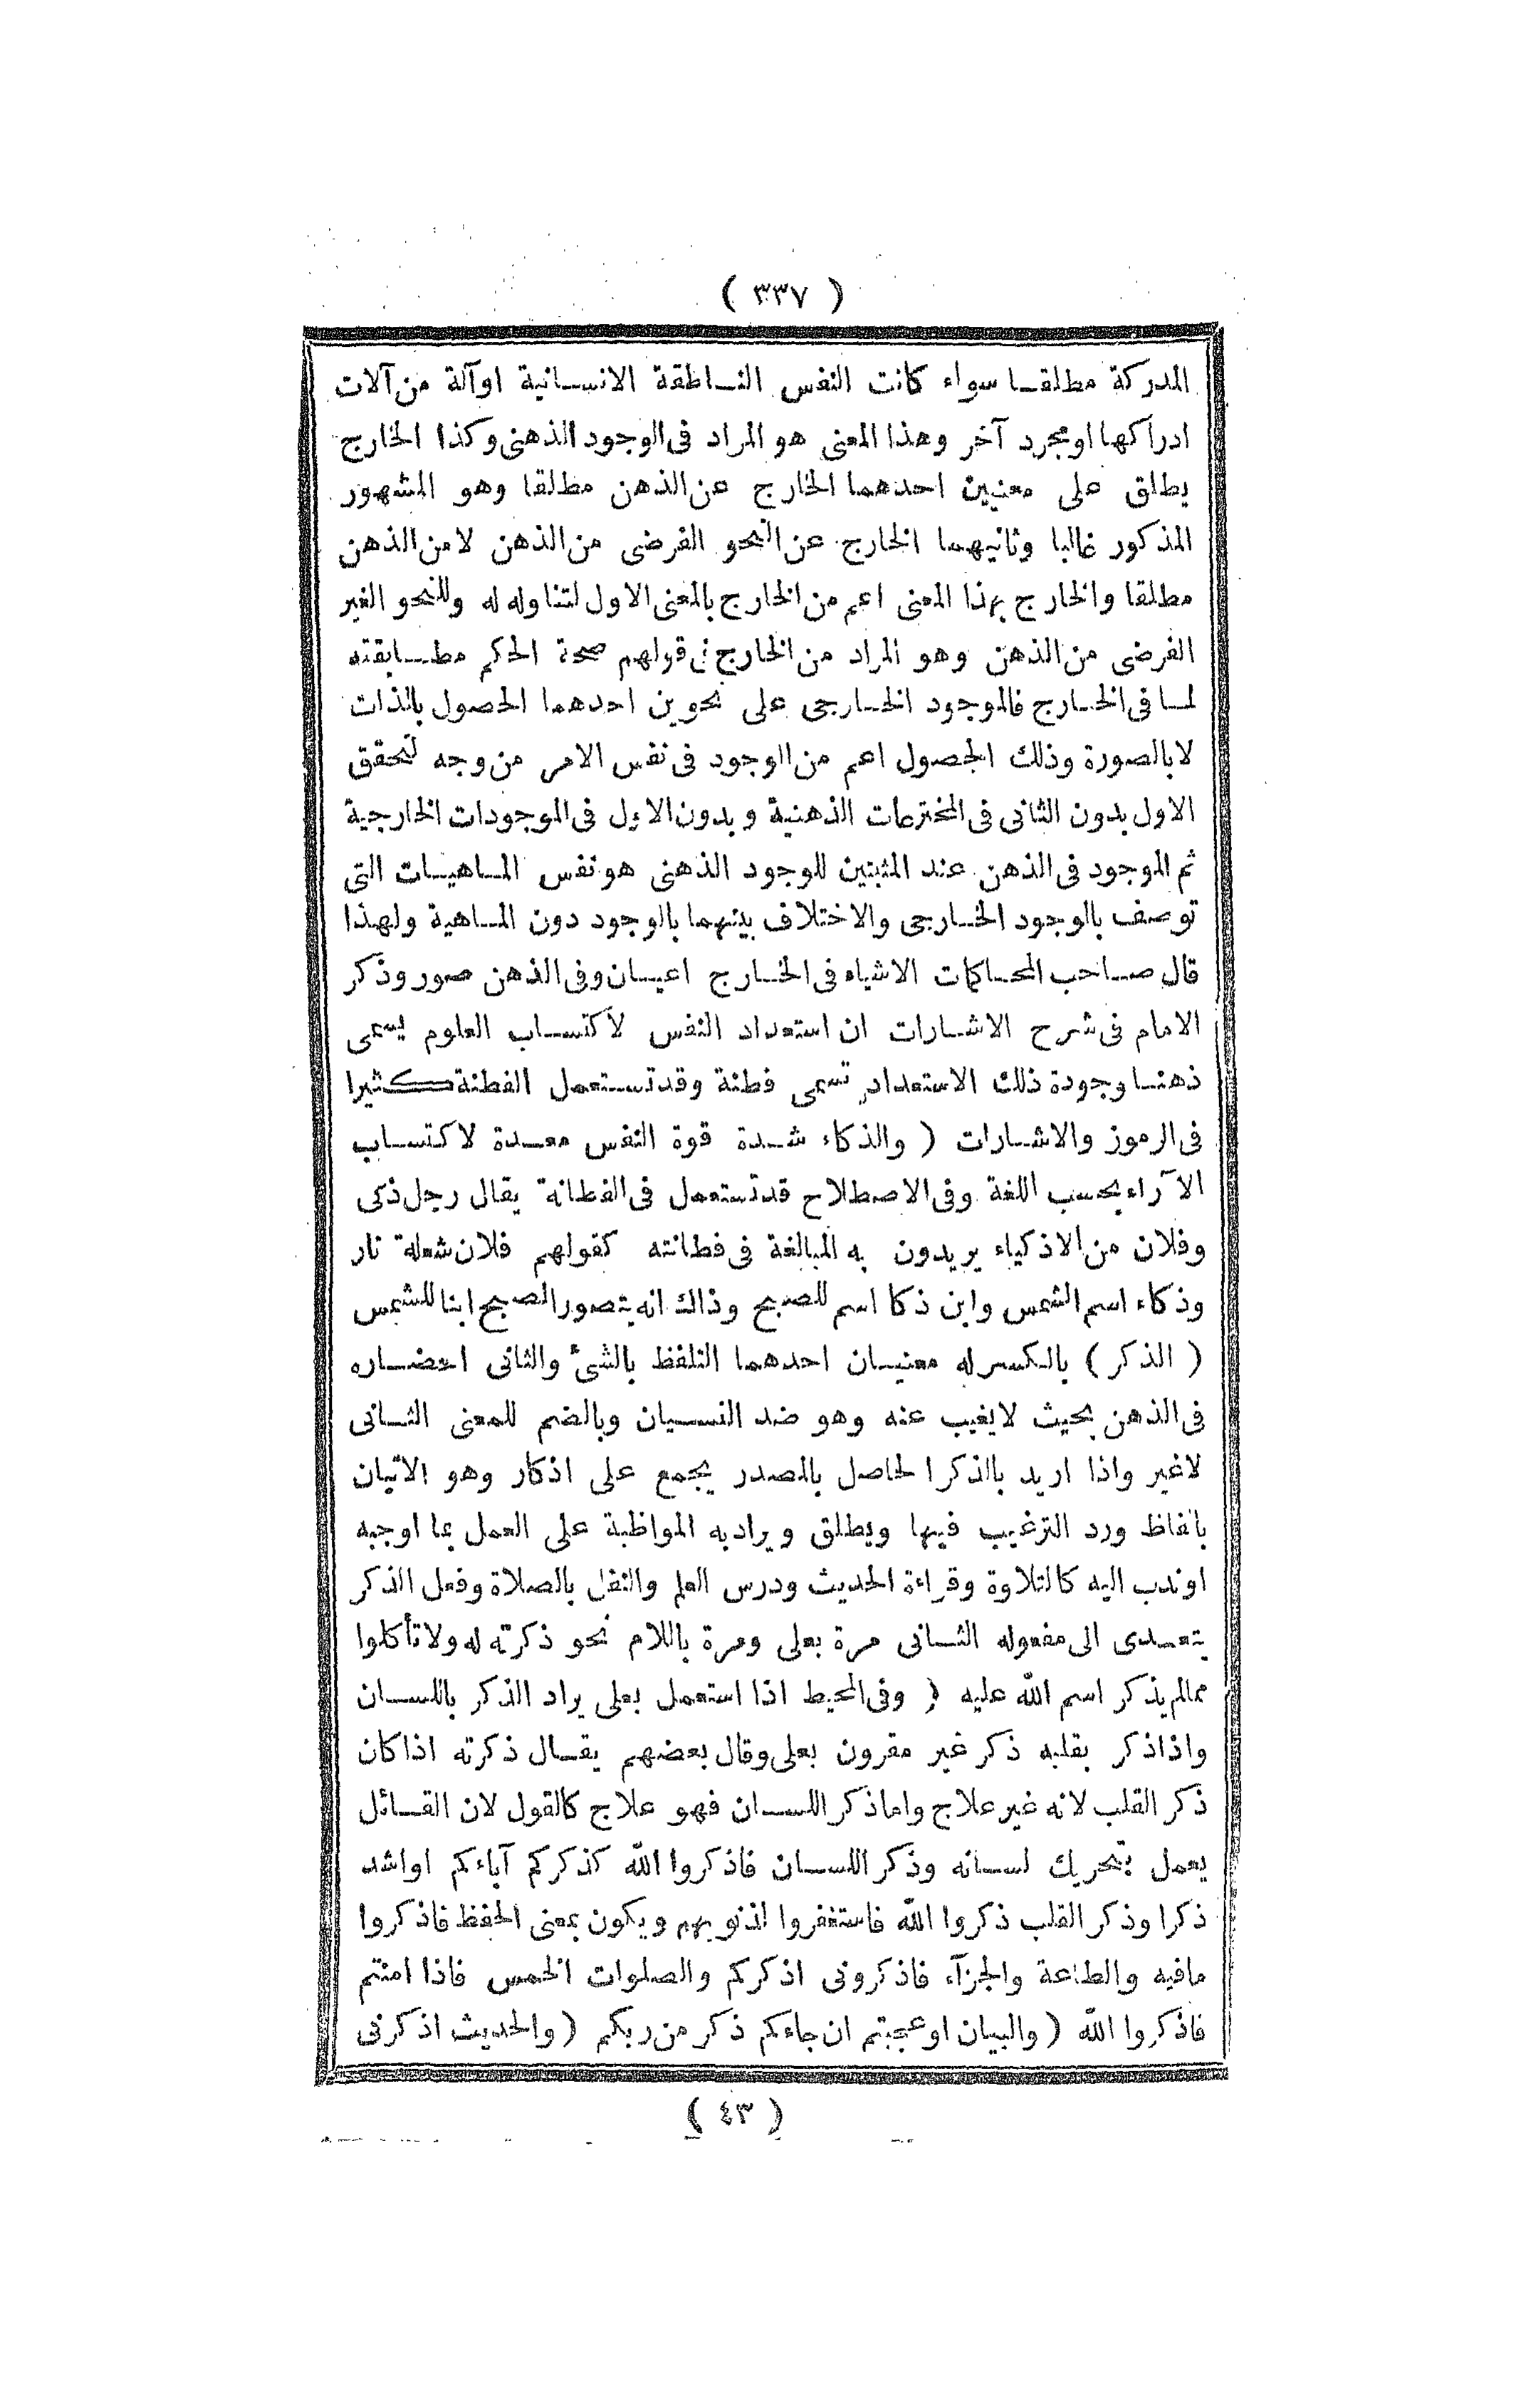 ( ٣٣٧ )
المدركة مطلقا سواء كانت النفس الناطقة الانسانية اوآلة من آلات
ادراكها اومجرد آخر وهذا المعنى هو المراد فى الوجود الذهنى وكذا الخارج
يطلق على معنيين احدهما الخارج عن الذهن مطلقا وهو المشهور
المذكور غالبا وثانيهما الخارج عن النحو الفرضى من الذهن لا من الذهن
مطلقا والخارج بهذا المعنى اعم من الخارج بالمعنى الاول لتناوله له وللنحو الغير
الفرضى من الذهن وهو المراد من الخارج فى قولهم صحة الحكم مطابقته
لما فى الخارج فالموجود الخارجى على نحوين احدهما الحصول بالذات
لا بالصورة وذلك الحصول اعم من الوجود فى نفس الامر من وجه لتحقق
الاول بدون الثانى فى المخترعات الذهنية وبدون الاول فى الموجودات الخارجية
ثم الموجود فى الذهن عند المثبتين للوجود الذهنى هو نفس الماهيات التى
توصف بالوجود الخارجى والاختلاف بينهما بالوجود دون الماهية ولهذا
قال صاحب المحاكمات الاشياء فى الخارج اعيان وفى الذهن صور وذكر
الامام فى شرح الاشارات ان استعداد النفس لاكتساب العلوم يسمى
ذهنا وجودة ذلك الاستعداد تسمى فطنة وقد تستعمل الفطنة كثيرا
فى الرموز والاشارات ( والذكاء شدة قوة النفس معدة لاكتساب
الآراء بحسب اللغة وفى الاصطلاح قد تستعمل فى الفطانة يقال رجل ذكى
وفلان من الاذكياء يريدون به المبالغة فى فطانته كقولهم فلان شعلة نار
وذكاء اسم الشمس وابن ذكا اسم للصبح وذاك انه يتصور الصبح ابنا للشمس
( الذكر ) بالكسر له معنيان احدهما التلفظ بالشئ والثانى احضاره
فى الذهن بحيث لا يغيب عنه وهو ضد النسيان وبالضم للمعنى الثانى
لاغير واذا اريد بالذكر الحاصل بالمصدر يجمع على اذكار وهو الاتيان
بالفاظ ورد الترغيب فيها ويطلق ويراد به المواظبة على العمل بما اوجبه
اوندب اليه كالتلاوة وقراءة الحديث ودرس العلم والنفل بالصلاة وفعل الذكر
يتعدى الى مفعوله الثانى مرة بعلى ومرة باللام نحو ذكرته له ولا تأكلوا
ممالم يذكر اسم الله عليه ( وفى المحيط اذا استعمل بعلى يراد الذكر باللسان
واذاذكر بقلبه ذكر غير مقرون بعلى وقال بعضهم يقال ذكرته اذا كان
ذكر القلب لانه غير علاج واما ذكر اللسان فهو علاج كالقول لان القائل
يعمل بتحريك لسانه وذكر اللسان فاذكروا الله كذكركم آباءكم اواشد
ذكرا وذكر القلب ذكروا الله فاستغفروا لذنوبهم ويكون بمعنى الحفظ فاذكروا
مافيه والطاعة والجزآء فاذكرونى اذكركم والصلوات الخمس فاذا امنتم
فاذكروا الله ( والبيان اوعجبتم ان جاءكم ذكر من ربكم ( والحديث اذكرنى
( ٤٣ )